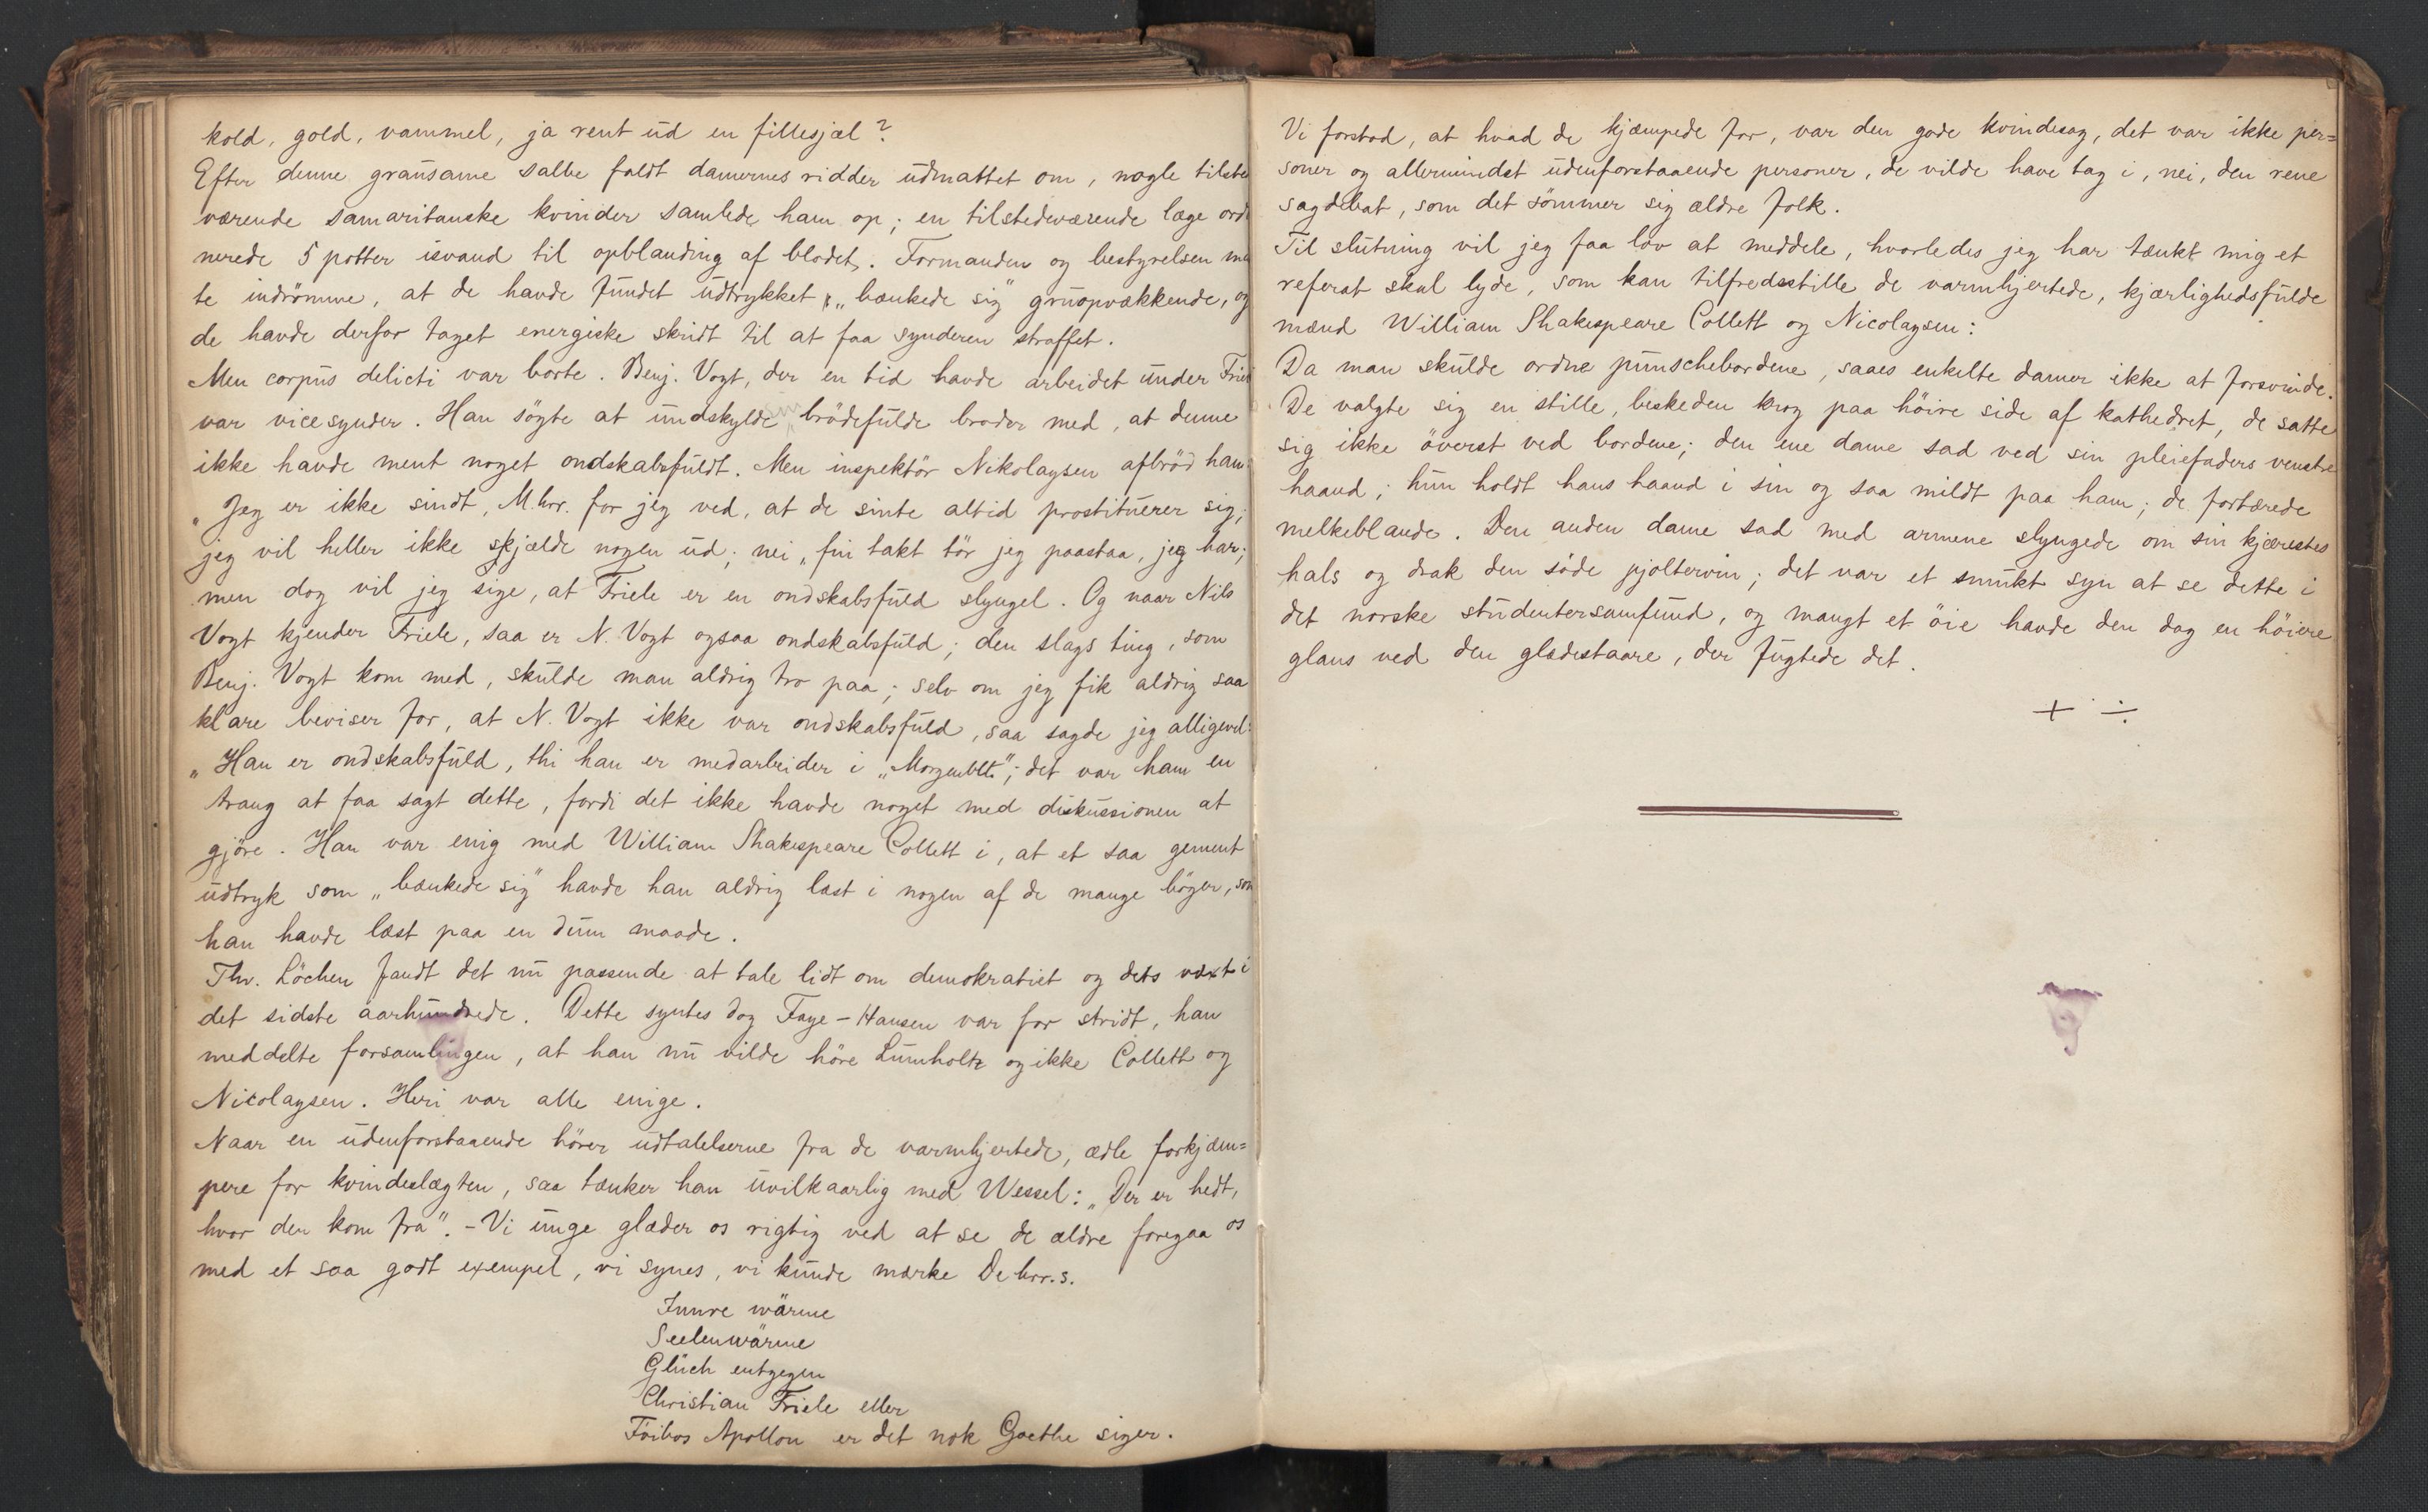 kold, gold, vammel, ja rent ud en fillesjæl?
Efter denne grausame salve faldt damernes ridder udmattet om, nogle tilste
værende samaritanske kvinder samlede ham op; en tilstedeværende læge ordi
nerede 5 potter isvand til opblanding af blodet. Formanden og bestyrelsen maa
te indrömme, at de havde fundet udtrykket „bænkede sig" gruopvækkende, og
de havde derfor taget energiske skridt til at faa synderen straffet.
Men corpus delicti var borte. Benj. Vogt, der en tid havde arbeidet under Friele
var vicesynder. Han sögte at undskylde sin brödefulde broder med, at denne
ikke havde ment noget ondskabsfuldt. Men inspektör Nikolaysen afbröd ham:
„Jeg er ikke sindt, M. hrr. for jeg ved, at de sinte altid prostituerer sig;
jeg vil heller ikke skjælde nogen ud; nei „fin takt tör jeg paastaa, jeg har;
men dog vil jeg sige, at Friele er en ondskabsfuld slyngel. Og naar Nils
Vogt kjender Friele, saa er N. Vogt ogsaa ondskabsfuld; den slags ting, som
Benj. Vogt kom med, skulde man aldrig tro paa; selv om jeg fik aldrig saa
klare beviser for, at N. Vogt ikke var ondskabsfuld, saa sagde jeg alligevel:
„Han er ondskabsfuld, thi han er medarbeider i „Morgenblt."; det var ham en
trang at faa sagt dette, fordi det ikke havde noget med diskussionen at
gjöre. Han var enig med William Shakespeare Collett i, at et saa gement
udtryk som „bænkede sig" havde han aldrig læst i nogen af de mange böger, som
han havde læst paa en dum maade.
Thv. Löchen fandt det nu passende at tale lidt om demokratiet og dets vækst i
det sidste aarhundrede. Dette syntes dog Faye-Hansen var for stridt, han
meddelte forsamlingen, at han nu vilde höre Lumholtz og ikke Collett og
Nicolaysen. Heri var alle enige.
Naar en udenforstaaende hörer udtalelserne fra de varmhjertede, ædle forkjæm=
pere for kvindeslægten, saa tænker han uvilkaarlig med Wessel: „Der er hedt,
hvor den kom fra". - Vi unge glæder os rigtig ved at se de ældre foregaa os
med et saa godt exempel, vi synes, vi kunde mærke De hrr.s.
Innre wärme
Seelenwärme
Glüch entgegen
Christian Friele eller
Föibos Apollon er det nok Goethe siger.
Vi forstod, at hvad de kjæmpede for, var den gode kvindesag, det var ikke per=
soner og allermindst udenforstaaende personer, de vilde have tag i, nei, den rene
sagdebat, som det sömmer sig ældre folk.
Til slutning vil jeg faa lov at meddele, hvorledes jeg har tænkt mig et
referat skal lyde, som kan tilfredsstille de varmhjertede, kjærlighedsfulde
mænd William Shakespeare Collett og Nicolaysen:
Da man skulde ordne punschebordene, saaes enkelte damer ikke at forsvinde.
De valgte sig en stille, beskeden krog paa höire side af kathedret, de satte
sig ikke överst ved bordene; den ene dame sad ved sin pleiefaders venstre
haand; hun holdt hans haand i sin og saa mildt paa ham; de fortærede
melkeblande. Den anden dame sad med armene slyngede om sin kjærestes
hals og drak den söde pjoltervin; det var et smukt syn at se dette i
det norske studentersamfund, og mangt et öie havde den dag en höiere
glans ved den glædestaare, der fugtede det.
+ ÷